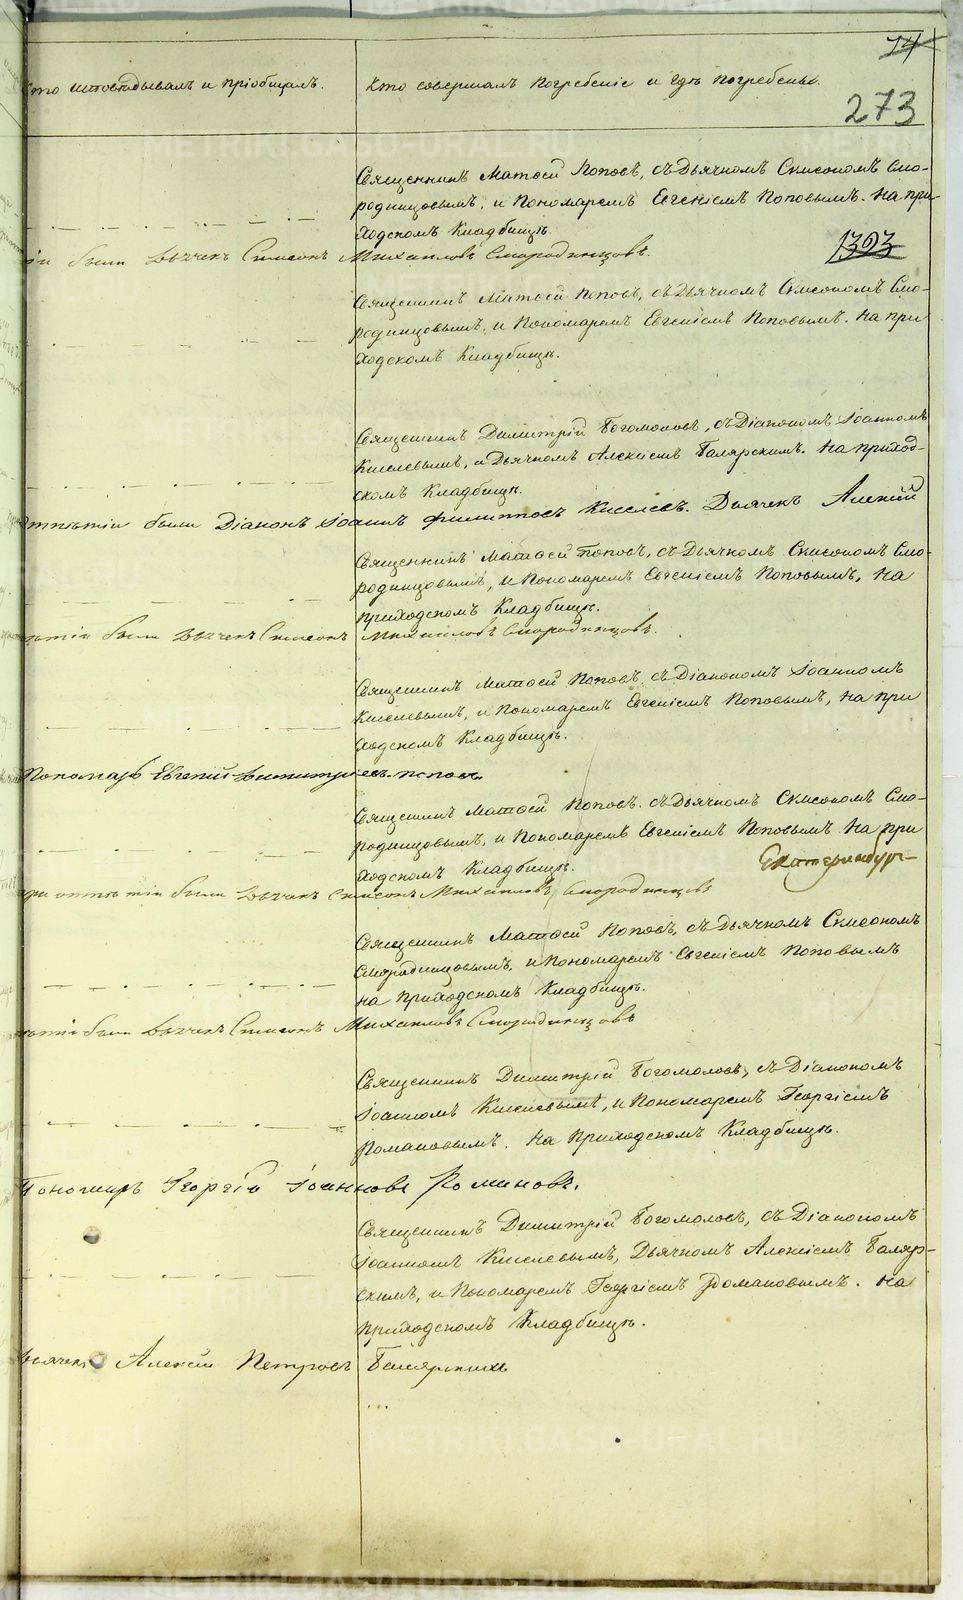 74
Кто исповѣдывалъ и пріобщалъ.
Кто совершалъ погребеніе и гдѣ погребены.
273
Священникъ Матѳей Поповъ, съ Дьячкомъ Симеономъ Смо-
родинцовымъ, и Пономаремъ Евгеніемъ Поповымъ. На при-
ходскомъ Кладбищѣ.
1393
были Дьячекъ Симеонъ Михайловъ Смородинцовъ.
Священникъ Матѳей Поповъ, съ Дьячкомъ Симеономъ Смо-
родинцовымъ, и Пономаремъ Евгеніемъ Поповымъ. На при
ходскомъ Кладбищѣ.
Священникъ Димитрій Богомоловъ, съ Діакономъ Іоанномъ
Киселевымъ, и Дьячкомъ Алексіемъ Балярскимъ. На приход-
скомъ Кладбищѣ.
были Діаконъ Іоаннъ Филипповъ Киселевъ. Дьячекъ Алексій
Священникъ Матѳей Поповъ, съ Дьячкомъ Симеономъ Смо-
родинцовымъ, и Пономаремъ Евгеніемъ Поповымъ, на
приходскомъ Кладбищѣ.
были Дьячекъ Симеонъ Михайловъ Смородинцовъ.
Священникъ Матѳей Поповъ, съ Діакономъ Іоанномъ
Киселевымъ, и Пономаремъ Евгеніемъ Поповымъ, на при
ходскомъ Кладбищѣ.
Пономарь Евгеній Димитріевъ Поповъ.
Священникъ Матѳей Поповъ, съ Дьячкомъ Симеономъ Смо-
родинцовымъ, и Пономаремъ Евгеніемъ Поповымъ на при
ходскомъ Кладбищѣ.
Екатеринбург
при отпѣтіи были Дьячекъ Симеонъ Михайловъ Смородинцовъ
Священникъ Матѳей Поповъ, съ Дьячкомъ Симеономъ
Смородинцовымъ, и Пономаремъ Евгеніемъ Поповымъ
на приходскомъ Кладбищѣ.
были Дьячекъ Симеонъ Михайловъ Смородинцовъ
Священникъ Димитрій Богомоловъ, съ Діакономъ
Іоанномъ Киселевымъ, и Пономаремъ Георгіемъ
Романовымъ. На приходскомъ Кладбищѣ.
Пономарь Георгій Іоанновъ Романовъ.
Священникъ Димитрій Богомоловъ, съ Діакономъ
Іоанномъ Киселевымъ, Дьячкомъ Алексіемъ Баляр-
скимъ, и Пономаремъ Георгіемъ Романовымъ. На
приходскомъ Кладбищѣ.
Дьячекъ Алексій Петровъ